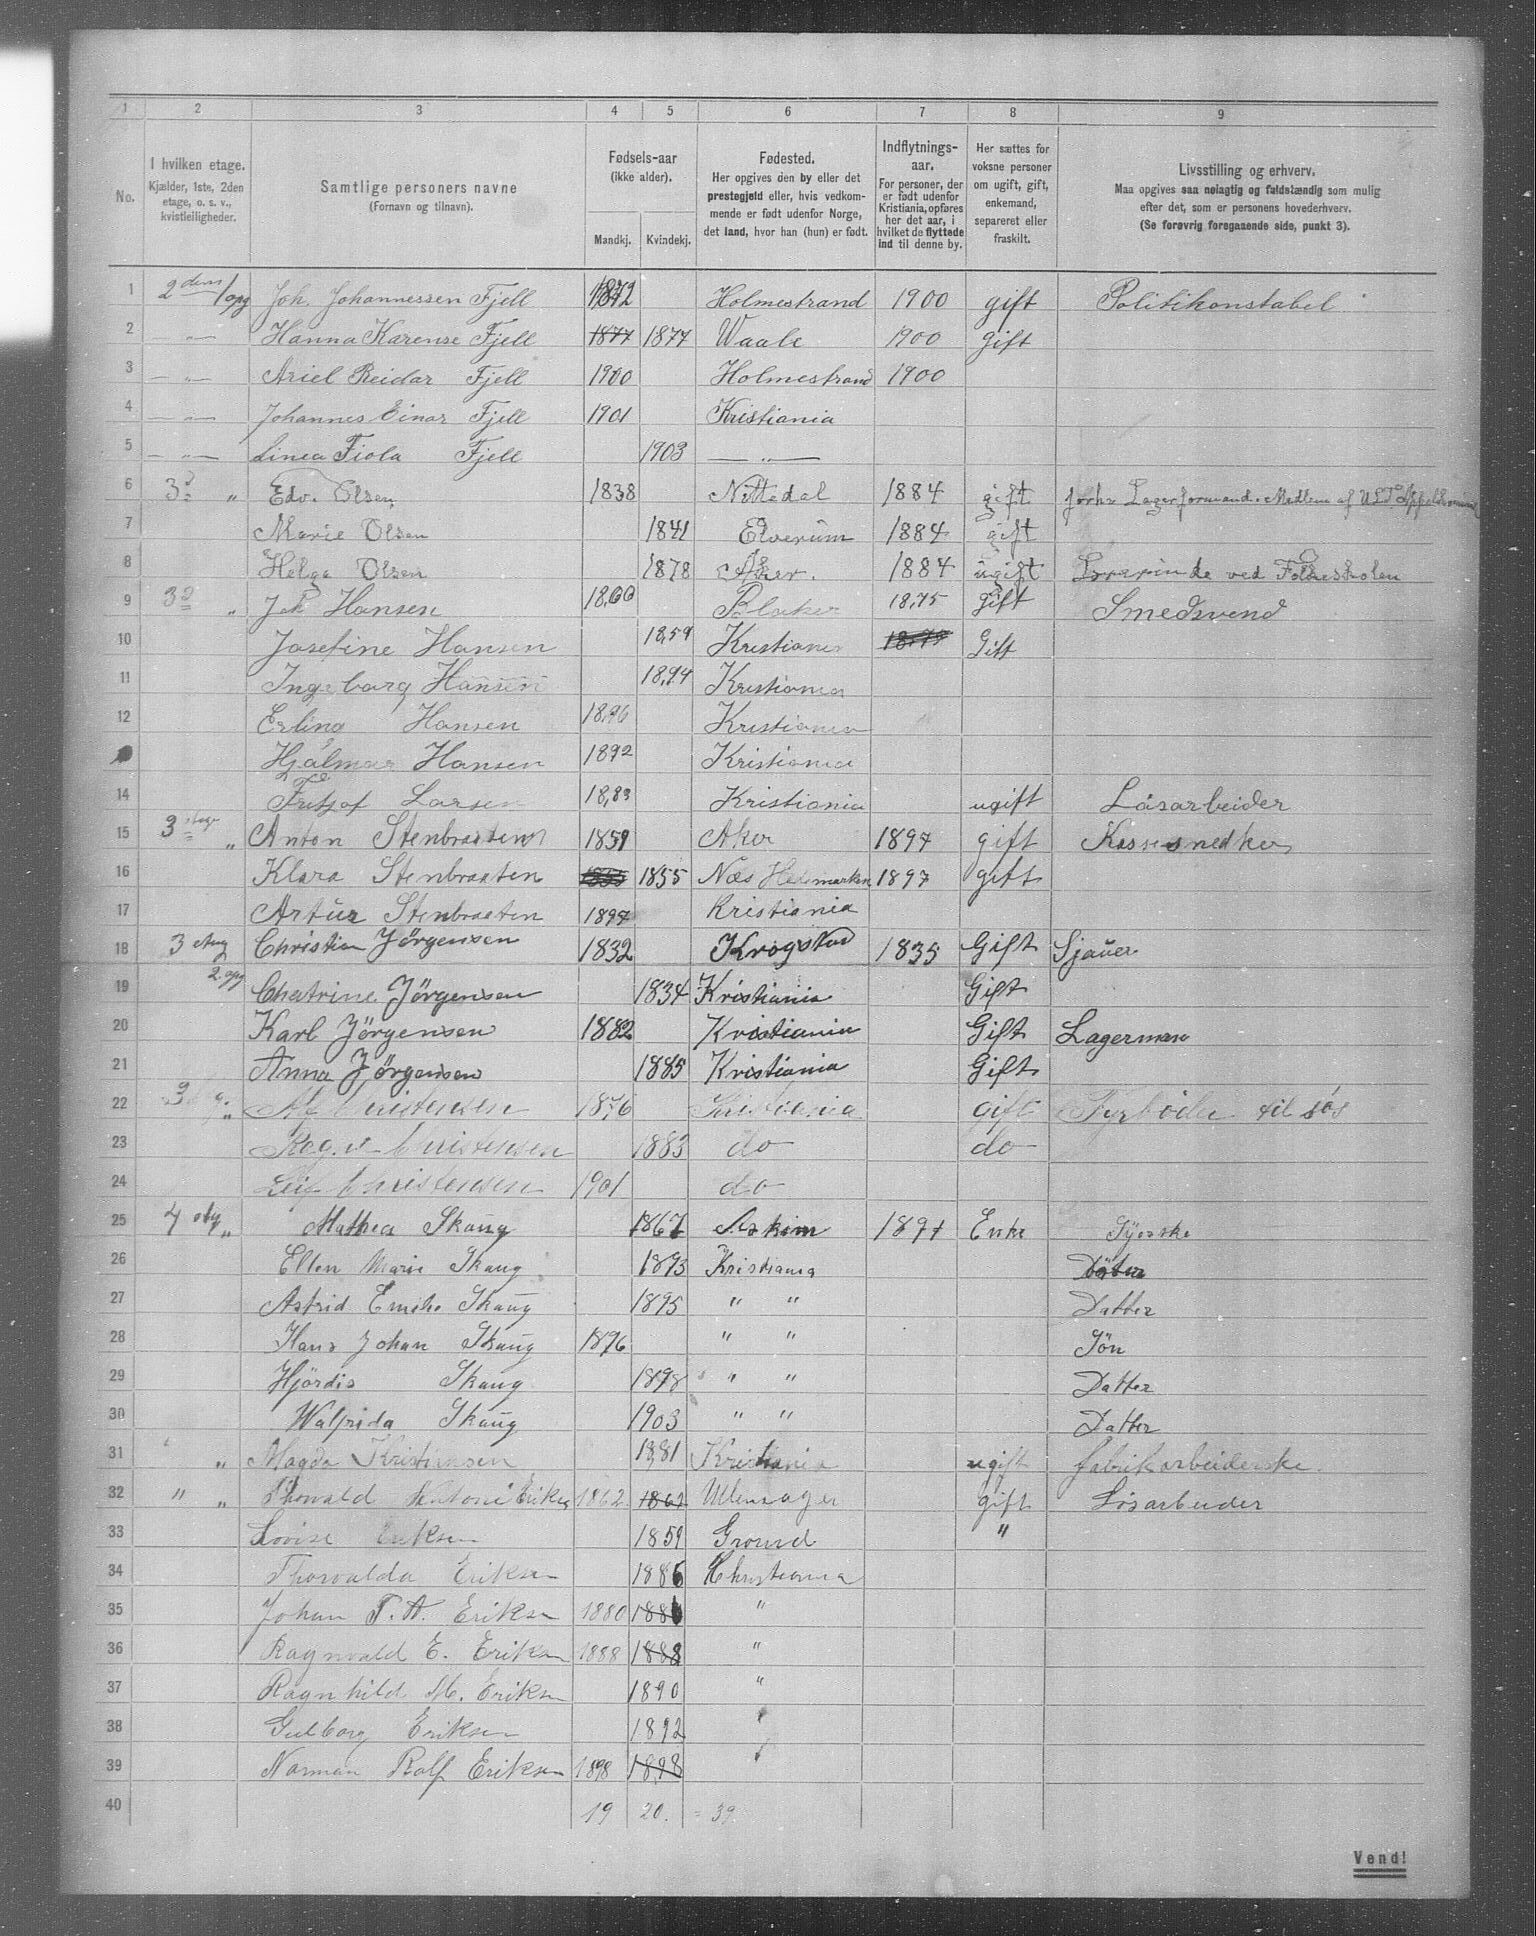 1 2 3 4 5 6 7 8 9
No. I hvilken etage. Kjælder, 1ste, 2den etage, o. s. v., kvistleiligheder. Samtlige personers navne (Fornavn og tilnavn). Fødsels-aar (ikke alder). Mandkj. Kvindekj. Fødested. Her opgives den by eller det prestegjeld eller, hvis vedkommende er født udenfor Norge, det land, hvor han (hun) er født. Indflytnings-aar. For personer, der er født udenfor Kristiania, opføres her det aar, i hvilket de flyttede ind til denne by. Her sættes for voksne personer om ugift, gift, enkemand, separeret eller fraskilt. Livsstilling og erhverv. Maa opgives saa nøiagtig og fuldstændig som mulig efter det, som er personens hovederhverv. (Se forøvrig foregaaende side, punkt 3).
1 2den 1 opg Joh. Johannessen Fjell 1872 Holmestrand 1900 gift Politikonstabel
2 — „ — Hanna Karense Fjell 1877 1877 Waale 1900 gift
3 — „ — Ariel Reidar Fjell 1900 Holmestrand 1900
4 — „ — Johannes Einar Fjell 1901 Kristiania
5 — „ — Linea Fiola Fjell 1903 — „ —
6 3d „ Edv. Olsen 1838 Nittedal 1884 gift forh. Lagerformand. Medlem af
7 Marie Olsen 1841 Elverum 1884 gift
8 Helga Olsen 1878 Aker. 1884 ugift Lærerinde ved Folkeskolen
9 3d „ Joh Hansen 1860 Blaker 1875 gift Smedsvend
10 Josefine Hansen 1859 Kristiania 1875 Gift
11 Ingeborg Hansen 1894 Kristiania
12 Erling Hansen 1896 Kristiania
Hjalmar Hansen 1892 Kristiania
14 Fritjof Larsen 1883 Kristiania ugift Løsarbeider
15 3 etage „ Anton Stenbraaten 1859 Aker 1897 gift Kassesnedker
16 Klara Stenbraaten 1855 1855 Næs Hedemarken 1897 gift
17 Artur Stenbraaten 1897 Kristiania
18 3 Christian Jörgensen 1832 Krogstad 1835 Gift Sjauer
19 2. opg Chatrine Jörgensen 1834 Kristiania Gift
20 Karl Jörgensen 1882 Kristiania Gift Lagerman
21 Anna Jörgensen 1885 Kristiania Gift
22 3 „ Alf Christensen 1876 Kristiania gift Fyrböder til sös
23 Christensen 1883 do do
24 Leif Christensen 1901 do
25 4 „ Mathea Skaug 1867 Askim 1897 Enke Syerske
26 Ellen Marie Skaug 1893 Kristiania Datter
27 Astrid Emilie Skaug 1895 „ „ Datter
28 Hans Johan Skaug 1896 „ „ Sön
29 Hjördis Skaug 1898 „ „ Datter
30 Walfrida Skaug 1903 „ „ Datter
31 „ Magda Kristiansen 1881 Kristiania ugift fabrikarbeiderske.
32 „ „ Thorvald Antoni Eriksen 1862 1862 Ullensager gift Løsarbeider
33 Lovise Eriksen 1859 Gromd „
34 Thorvalda Eriksen 1886 Christiania
35 Johan T. A. Eriksen 1880 1880 „
36 Ragnvald E. Eriksen 1888 1888 „
37 Ragnhild M. Eriksen 1890 „
38 Gulborg Eriksen 1892 „
39 Norman Rolf Eriksen 1898 1898 „
40 19 20. = 39
Vend!